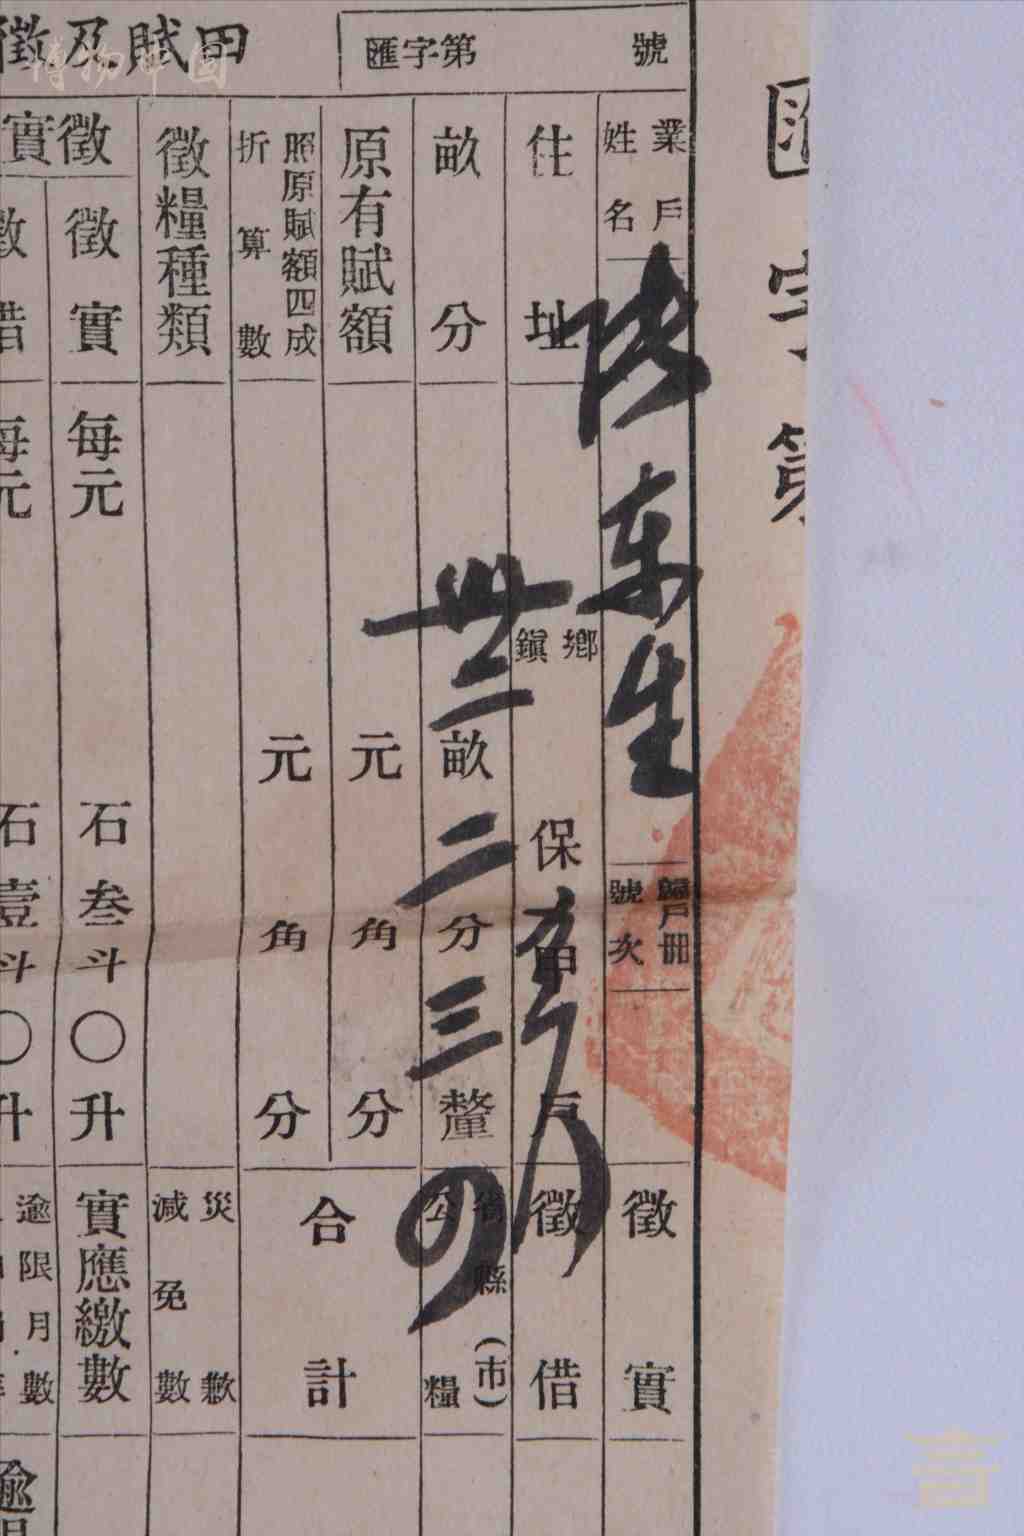 匯字第
匯字第 號
田賦及徵
業戶姓名
陸東生
歸戶冊號次
住址
鄉鎮 保 甲 戶
畝分
卅三畝二分三釐四
原有賦額
元 角 分
照原賦額四成折算數
元 角 分
徵糧種類
徵實
徵實
每元 石叁斗〇升
徵借
每元 石壹斗〇升
徵實
徵借
省縣(市)公糧
合計
災歉減免數
實應繳數
逾限月數
逾
博物中國